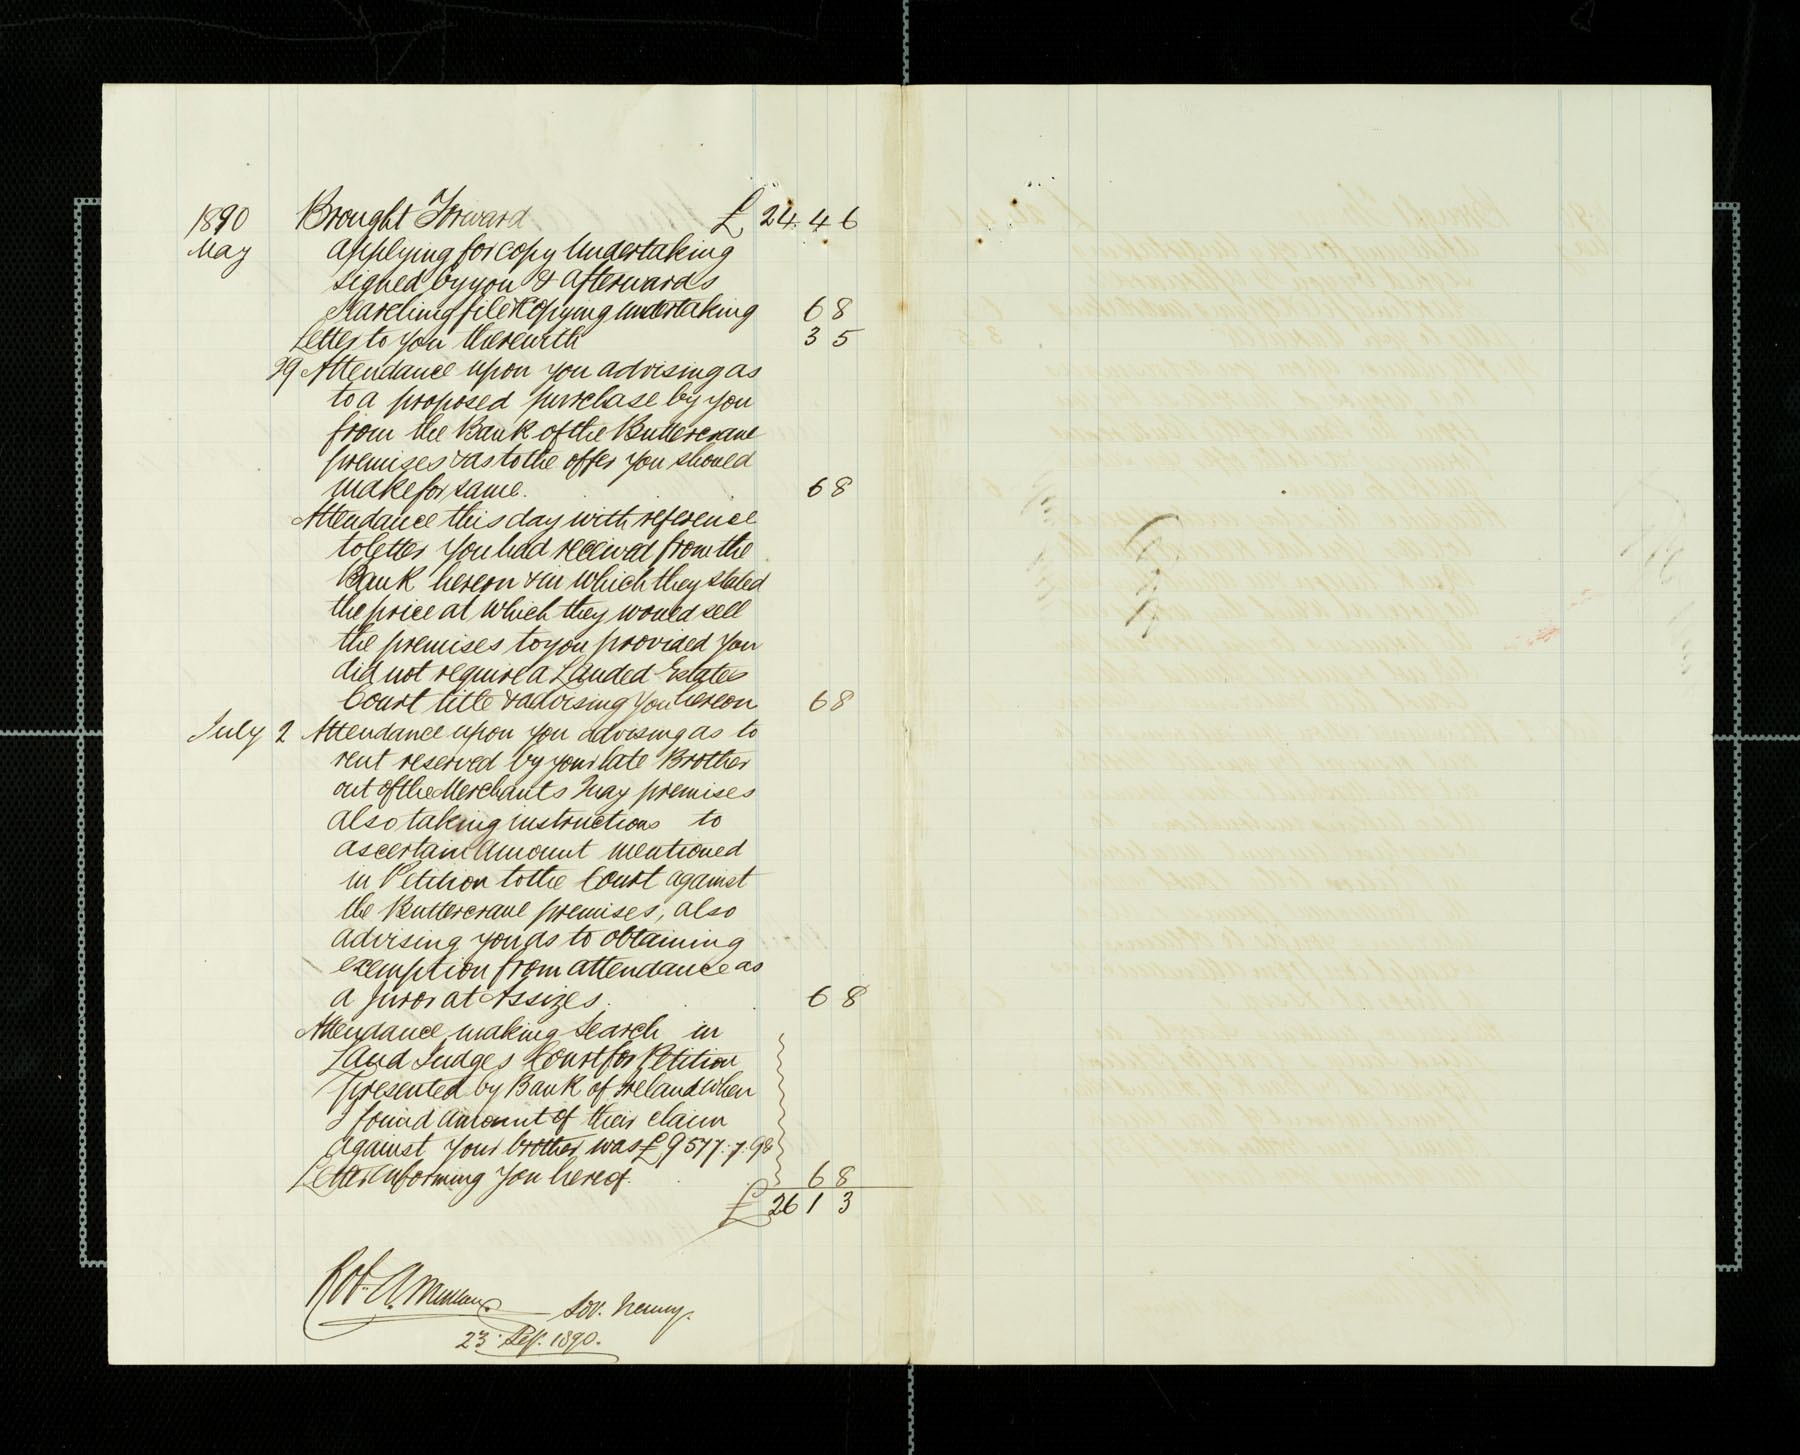 1890 Brought Forward £ 24. 4 6
May applying for copy Undertaking
signed by you & afterwards
Searching file & copying undertaking 6 8
Letter to you therewith 3 5
29 Attendance upon you advising as
to a proposed purchase by you
from the Bank of the Buttercrane
premises & as to the offer you should
make for same. 6 8
Attendance this day with reference
to letter you had received from the
Bank hereon & in which they stated
the price at which they would sell
the premises to you provided you
did not require a Landed Estates
Court title & advising you hereon 6 8
July 2 Attendance upon you advising as to
rent reserved by your late Brother
out of the Merchants Quay premises
also taking instructions to
ascertain amount mentioned
in Petition to the Court against
the Buttercrane premises, also
advising you as to obtaining
exemption from attendance as
a juror at Assizes. 6 8
Attendance making search in
Land Judges Court for Petition
presented by Bank of Ireland when
I found amount of their claim
against your brother was £9577.7.9
Letter informing you hereof. 6 8
£ 26 1 3
Sol. Newry.
23 Sep. 1890.